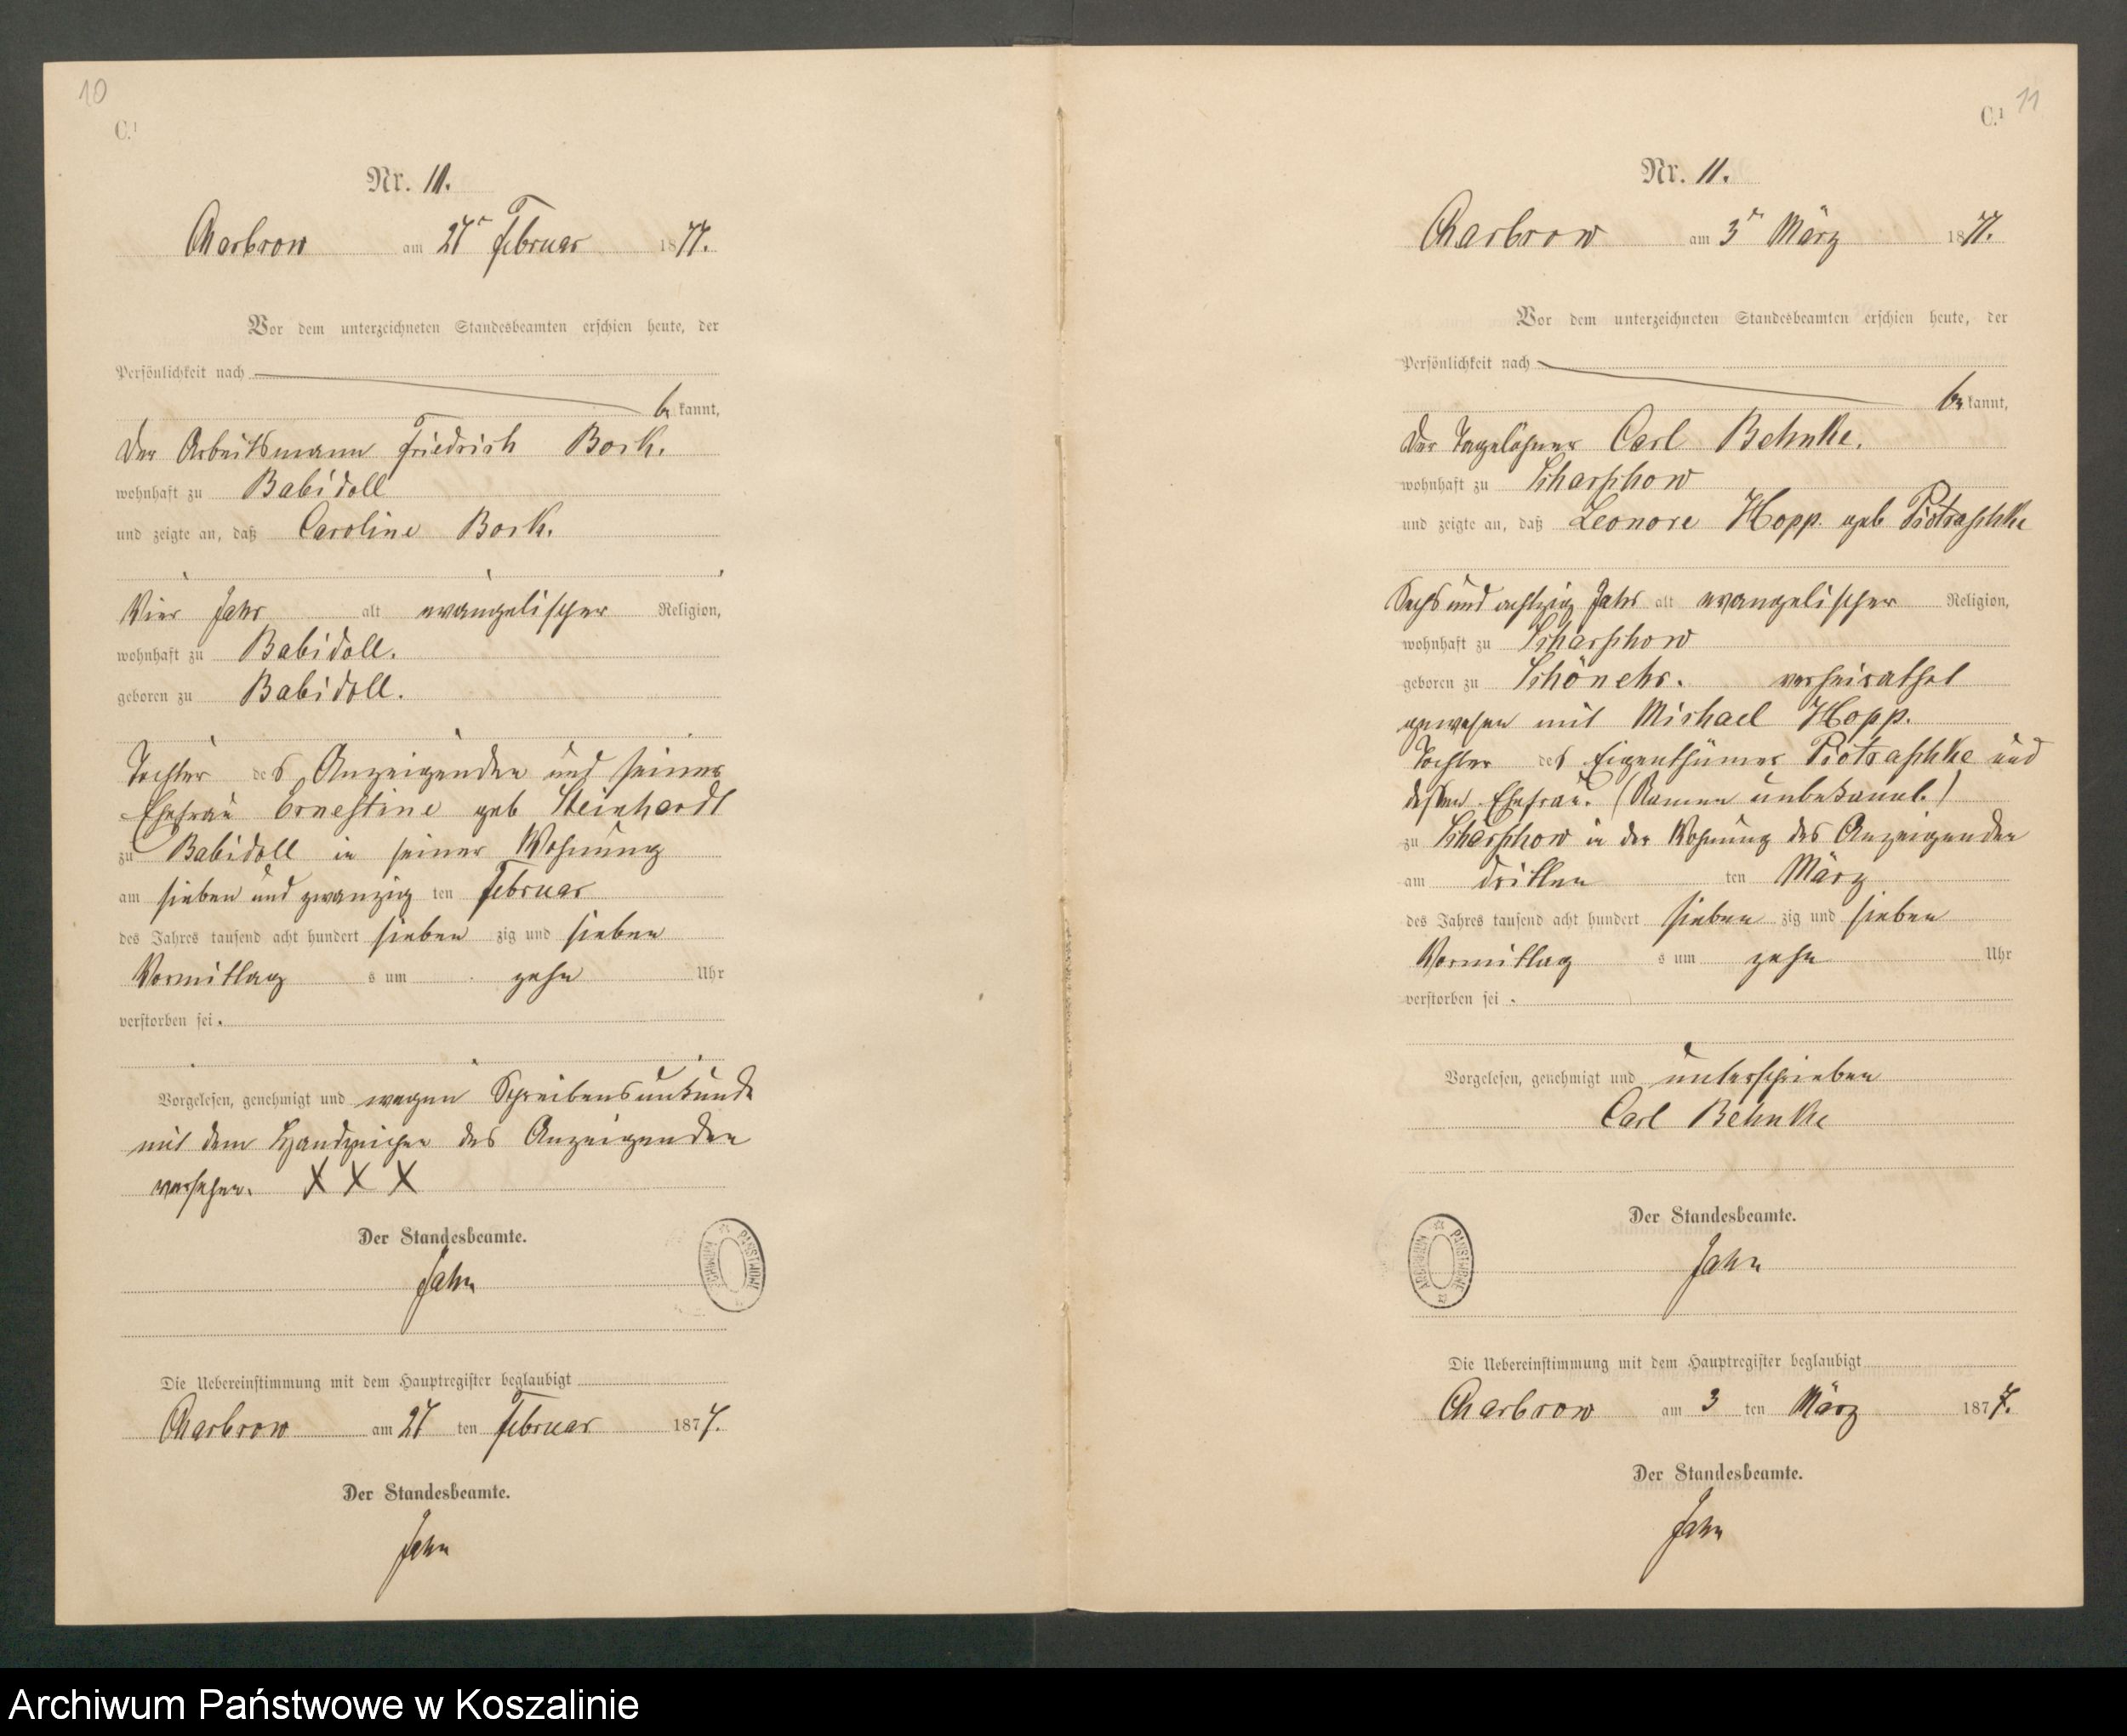 10
C.¹
Nr. 10.
Charbrow am 27ⁿ Februar 1877.
Vor dem unterzeichneten Standesbeamten erschien heute, der
Persönlichkeit nach
bekannt,
der Arbeitsmann Friedrich Bork.
wohnhaft zu Babidoll
und zeigte an, daß Caroline Bork.
Vier Jahr alt evangelischer Religion,
wohnhaft zu Babidoll.
geboren zu Babidoll.
Tochter des Anzeigenden und seiner
Ehefrau Ernestine geb Steinhardt
zu Babidoll in seiner Wohnung
am sieben und zwanzig ten Februar
des Jahres tausend acht hundert sieben zig und sieben
Vormittag s um zehn Uhr
verstorben sei.
Vorgelesen, genehmigt und wegen Schreibensunkunde
mit dem Handzeichen des Anzeigenden
versehen. X X X
Der Standesbeamte.
Jahn
ARCHIWUM PAŃSTWOWE
Die Uebereinstimmung mit dem Hauptregister beglaubigt
Charbrow am 27 ten Februar 1877.
Der Standesbeamte.
Jahn
11
C.¹
Nr. 11.
Charbrow am 3ⁿ März 1877.
Vor dem unterzeichneten Standesbeamten erschien heute, der
Persönlichkeit nach
bekannt,
der Tagelöhner Carl Behnke.
wohnhaft zu Scharschow
und zeigte an, daß Leonore Hopp. geb Piotraschke
Sechs und achtzig Jahr alt evangelischer Religion,
wohnhaft zu Scharschow
geboren zu Schönehr. verheirathet
gewesen mit Michael Hopp.
Tochter des Eigenthümer Piotraschke und
dessen Ehefrau. (Namen unbekannt.)
zu Scharschow in der Wohnung des Anzeigenden
am dritten ten März
des Jahres tausend acht hundert sieben zig und sieben
Vormittag s um zehn Uhr
verstorben sei.
Vorgelesen, genehmigt und unterschrieben
Carl Behnke
Der Standesbeamte.
Jahn
ARCHIWUM PAŃSTWOWE
Die Uebereinstimmung mit dem Hauptregister beglaubigt
Charbrow am 3 ten März 1877.
Der Standesbeamte.
Jahn
Archiwum Państwowe w Koszalinie